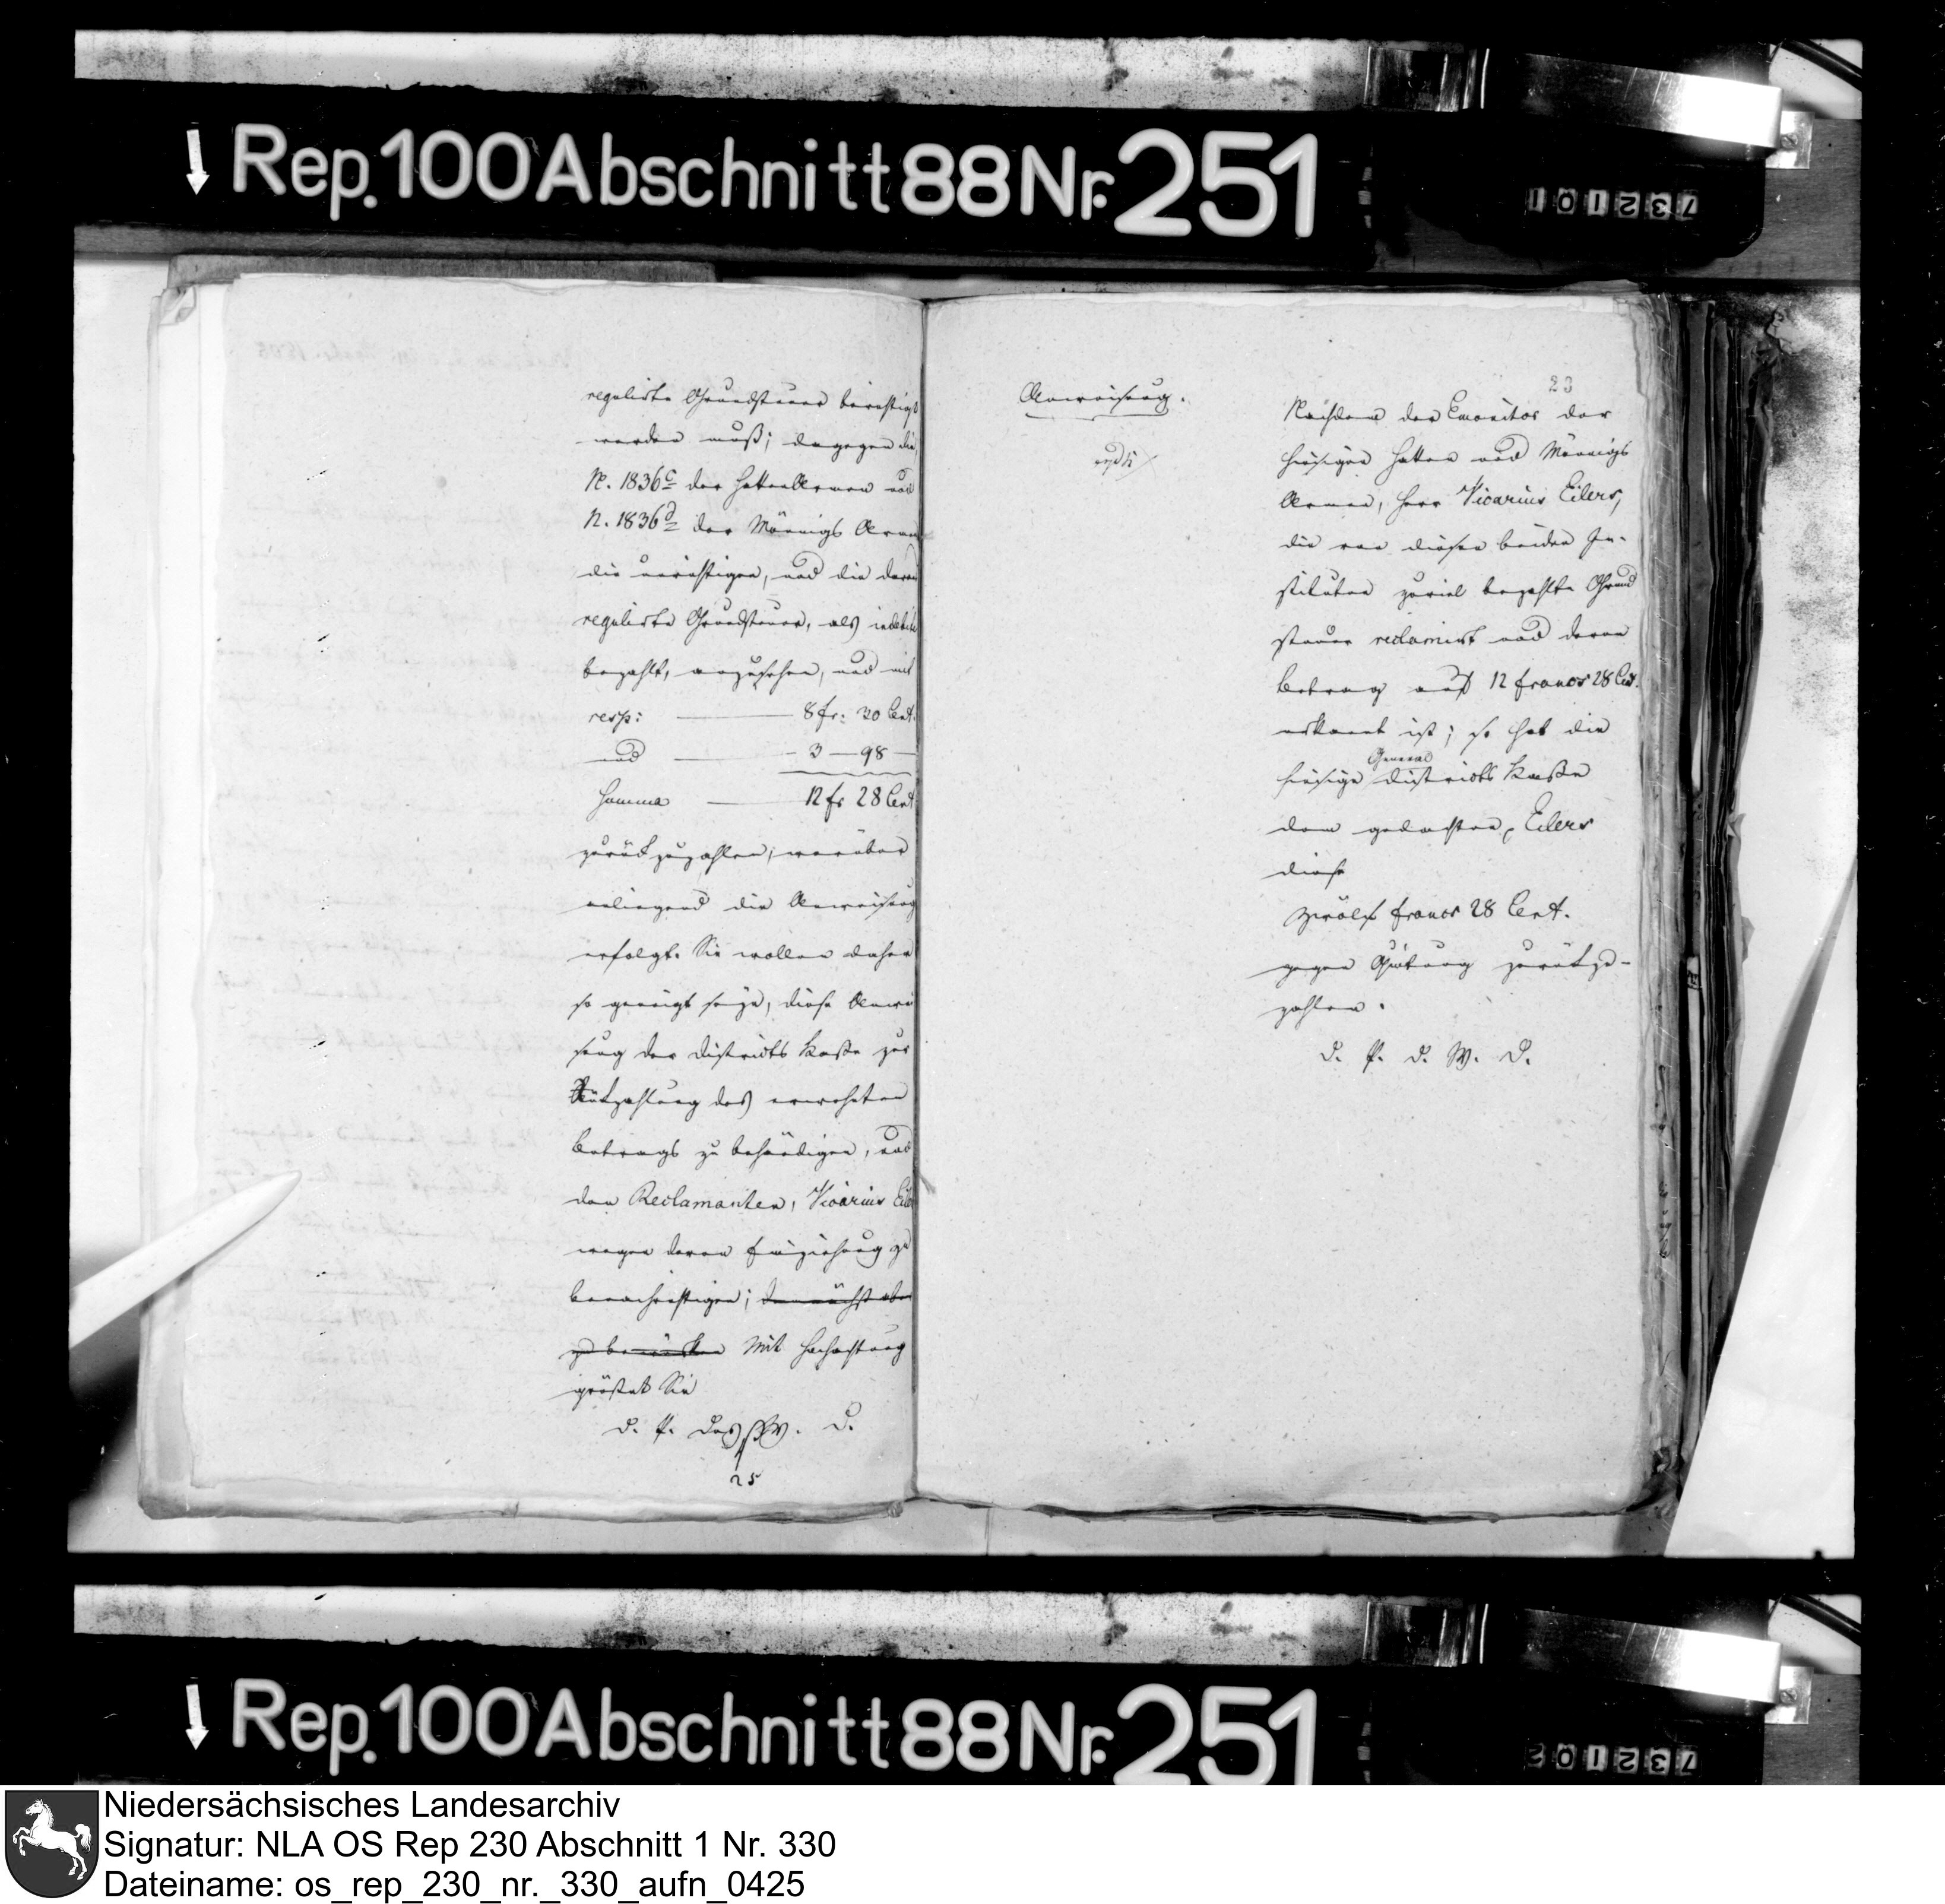 Rep. 100 Abschnitt 88 Nr. 251
732101
regulirte Grundsteuer berichtigt
werden muß; dagegen die
N. 1836c der HattenArmen und
N. 1836d der Mönnigs Armen
die unrichtigen, und die davon
regulirte Grundsteuer, als indebite
bezahlt, anzusehen, und mit
resp: 8 fr: 30 Cent.
und 3 — 98 —
Summa 12 fr 28 Cent
zurückzuzahlen, worüber
anliegend die Anweisung
erfolgt. Sie wollen daher
so geneigt seyn, diese Anwei
sung der Districts Kasse zur
Rückzahlung des erwehnten
Betrags zu behändigen, und
den Reclamanten, Vicarius Eilers
wegen deren Einziehung zu
benachrichtigen; demnächst aber
zu bemerken Mit Hochachtung
grüßet Sie
d. P. des W. D.
25
23
Anweisung.
Nachdem der Emonitor der
hiesigen Hatten und Mönnigs
Armen, Herr Vicarius Eilers,
die von diesen beiden In-
stituten zuviel bezahlte Grund
steuer reclamirt und deren
Betrag auf 12 francs 28 Cent.
erkannt ist; so hat die
General
hiesige Districts Kasse
dem gedachten Eilers
diese
zwölf francs 28 Cent.
gegen Quitung zurückzu-
zahlen.
d. P. d. W. D.
Rep. 100 Abschnitt 88 Nr. 251
732102
Niedersächsisches Landesarchiv
Signatur: NLA OS Rep 230 Abschnitt 1 Nr. 330
Dateiname: os_rep_230_nr._330_aufn_0425